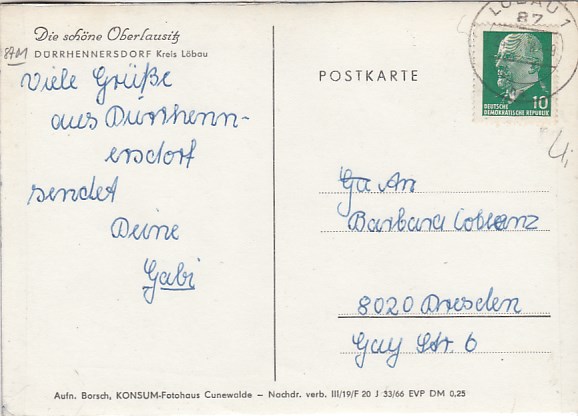 Die schöne Oberlausitz
8701 DÜRRHENNERSDORF Kreis Löbau
Viele Grüße
aus Dürrhenn-
ersdorf
sendet
Deine
Gabi
POSTKARTE
LÖBAU 1
87
DEUTSCHE
DEMOKRATISCHE REPUBLIK
10
An
Barbara Coblenz
8020 Dresden
Gay Str. 6
Aufn. Borsch, KONSUM-Fotohaus Cunewalde – Nachdr. verb. III/19/F 20 J 33/66 EVP DM 0,25